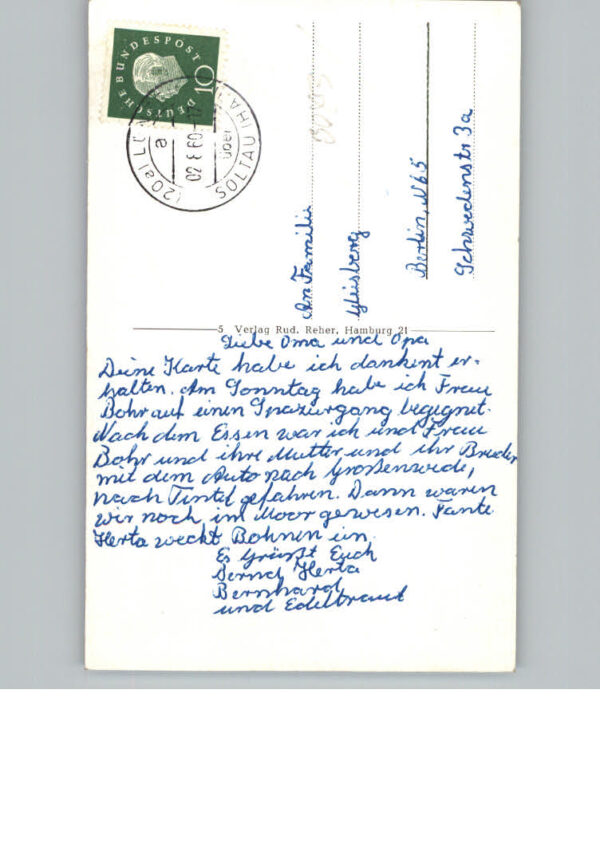 DEUTSCHE BUNDESPOST
10
(20a) LÜ
a
02.8.60
über
SOLTAU (HA
An Familie
Gleisberg
Berlin, N65
Schwedenstr 3a
5 Verlag Rud. Reher, Hamburg 21
Liebe Oma und Opa
Deine Karte habe ich dankent er-
halten. Am Sonntag habe ich Frau
Bohr auf einen begegnet.
Nach dem Essen war ich und Frau
Bohr und ihre Mutter und ihr Bruder
mit dem Auto nach Großenwede,
nach Tintel gefahren. Dann waren
wir noch im Moor gewesen. Tante
Herta weckt Bohnen ein.
Es Grüßt Euch
Bernd Herta
Bernhard
und Edeltraut